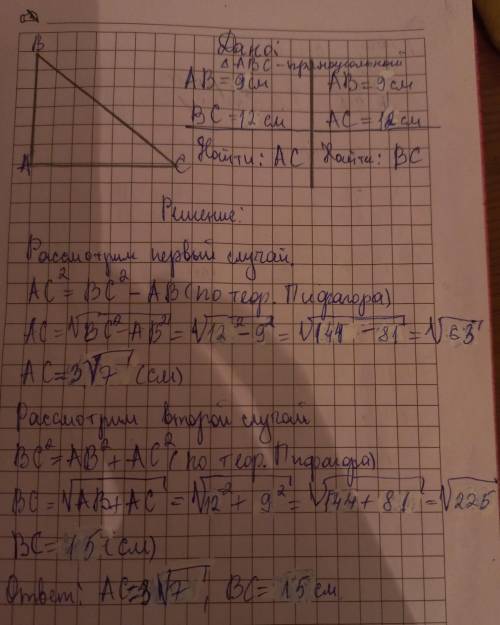 B
Дано:
△ABC - прямоугольный
AB = 9 см
AB = 9 см
BC = 12 см
AC = 12 см
A
C
Найти: AC
Найти: BC
Решение:
Рассмотрим первый случай.
AC² = BC² - AB (по теор. Пифагора)
AC = √BC² - AB² = √12² - 9² = √144 - 81 = √63
AC = 3√7 (см)
Рассмотрим второй случай
BC² = AB² + AC² (по теор. Пифагора)
BC = √AB + AC = √12² + 9² = √144 + 81 = √225
BC = 15 (см)
Ответ: AC = 3√7, BC = 15 см